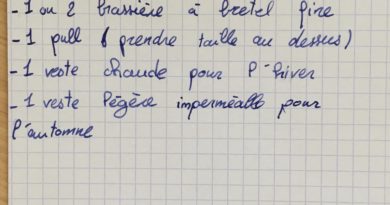 - 1 ou 2 brassière à bretel fine
- 1 pull ( prendre taille au dessus)
- 1 veste chaude pour l'hiver
- 1 veste légère imperméable pour
l'automne